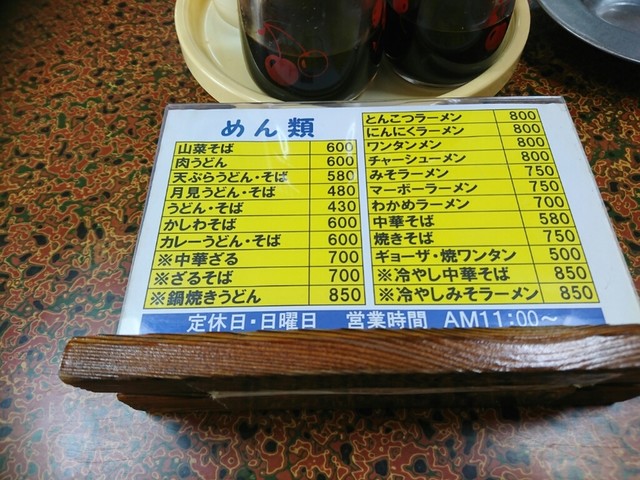 めん類
山菜そば 600
肉うどん 600
天ぷらうどん・そば 580
月見うどん・そば 480
うどん・そば 430
かしわそば 600
カレーうどん・そば 600
※中華ざる 700
※ざるそば 700
※鍋焼きうどん 850
とんこつラーメン 800
にんにくラーメン 800
ワンタンメン 800
チャーシューメン 800
みそラーメン 750
マーボーラーメン 750
わかめラーメン 700
中華そば 580
焼きそば 750
ギョーザ・焼ワンタン 500
※冷やし中華そば 850
※冷やしみそラーメン 850
定休日・日曜日 営業時間 AM11:00～